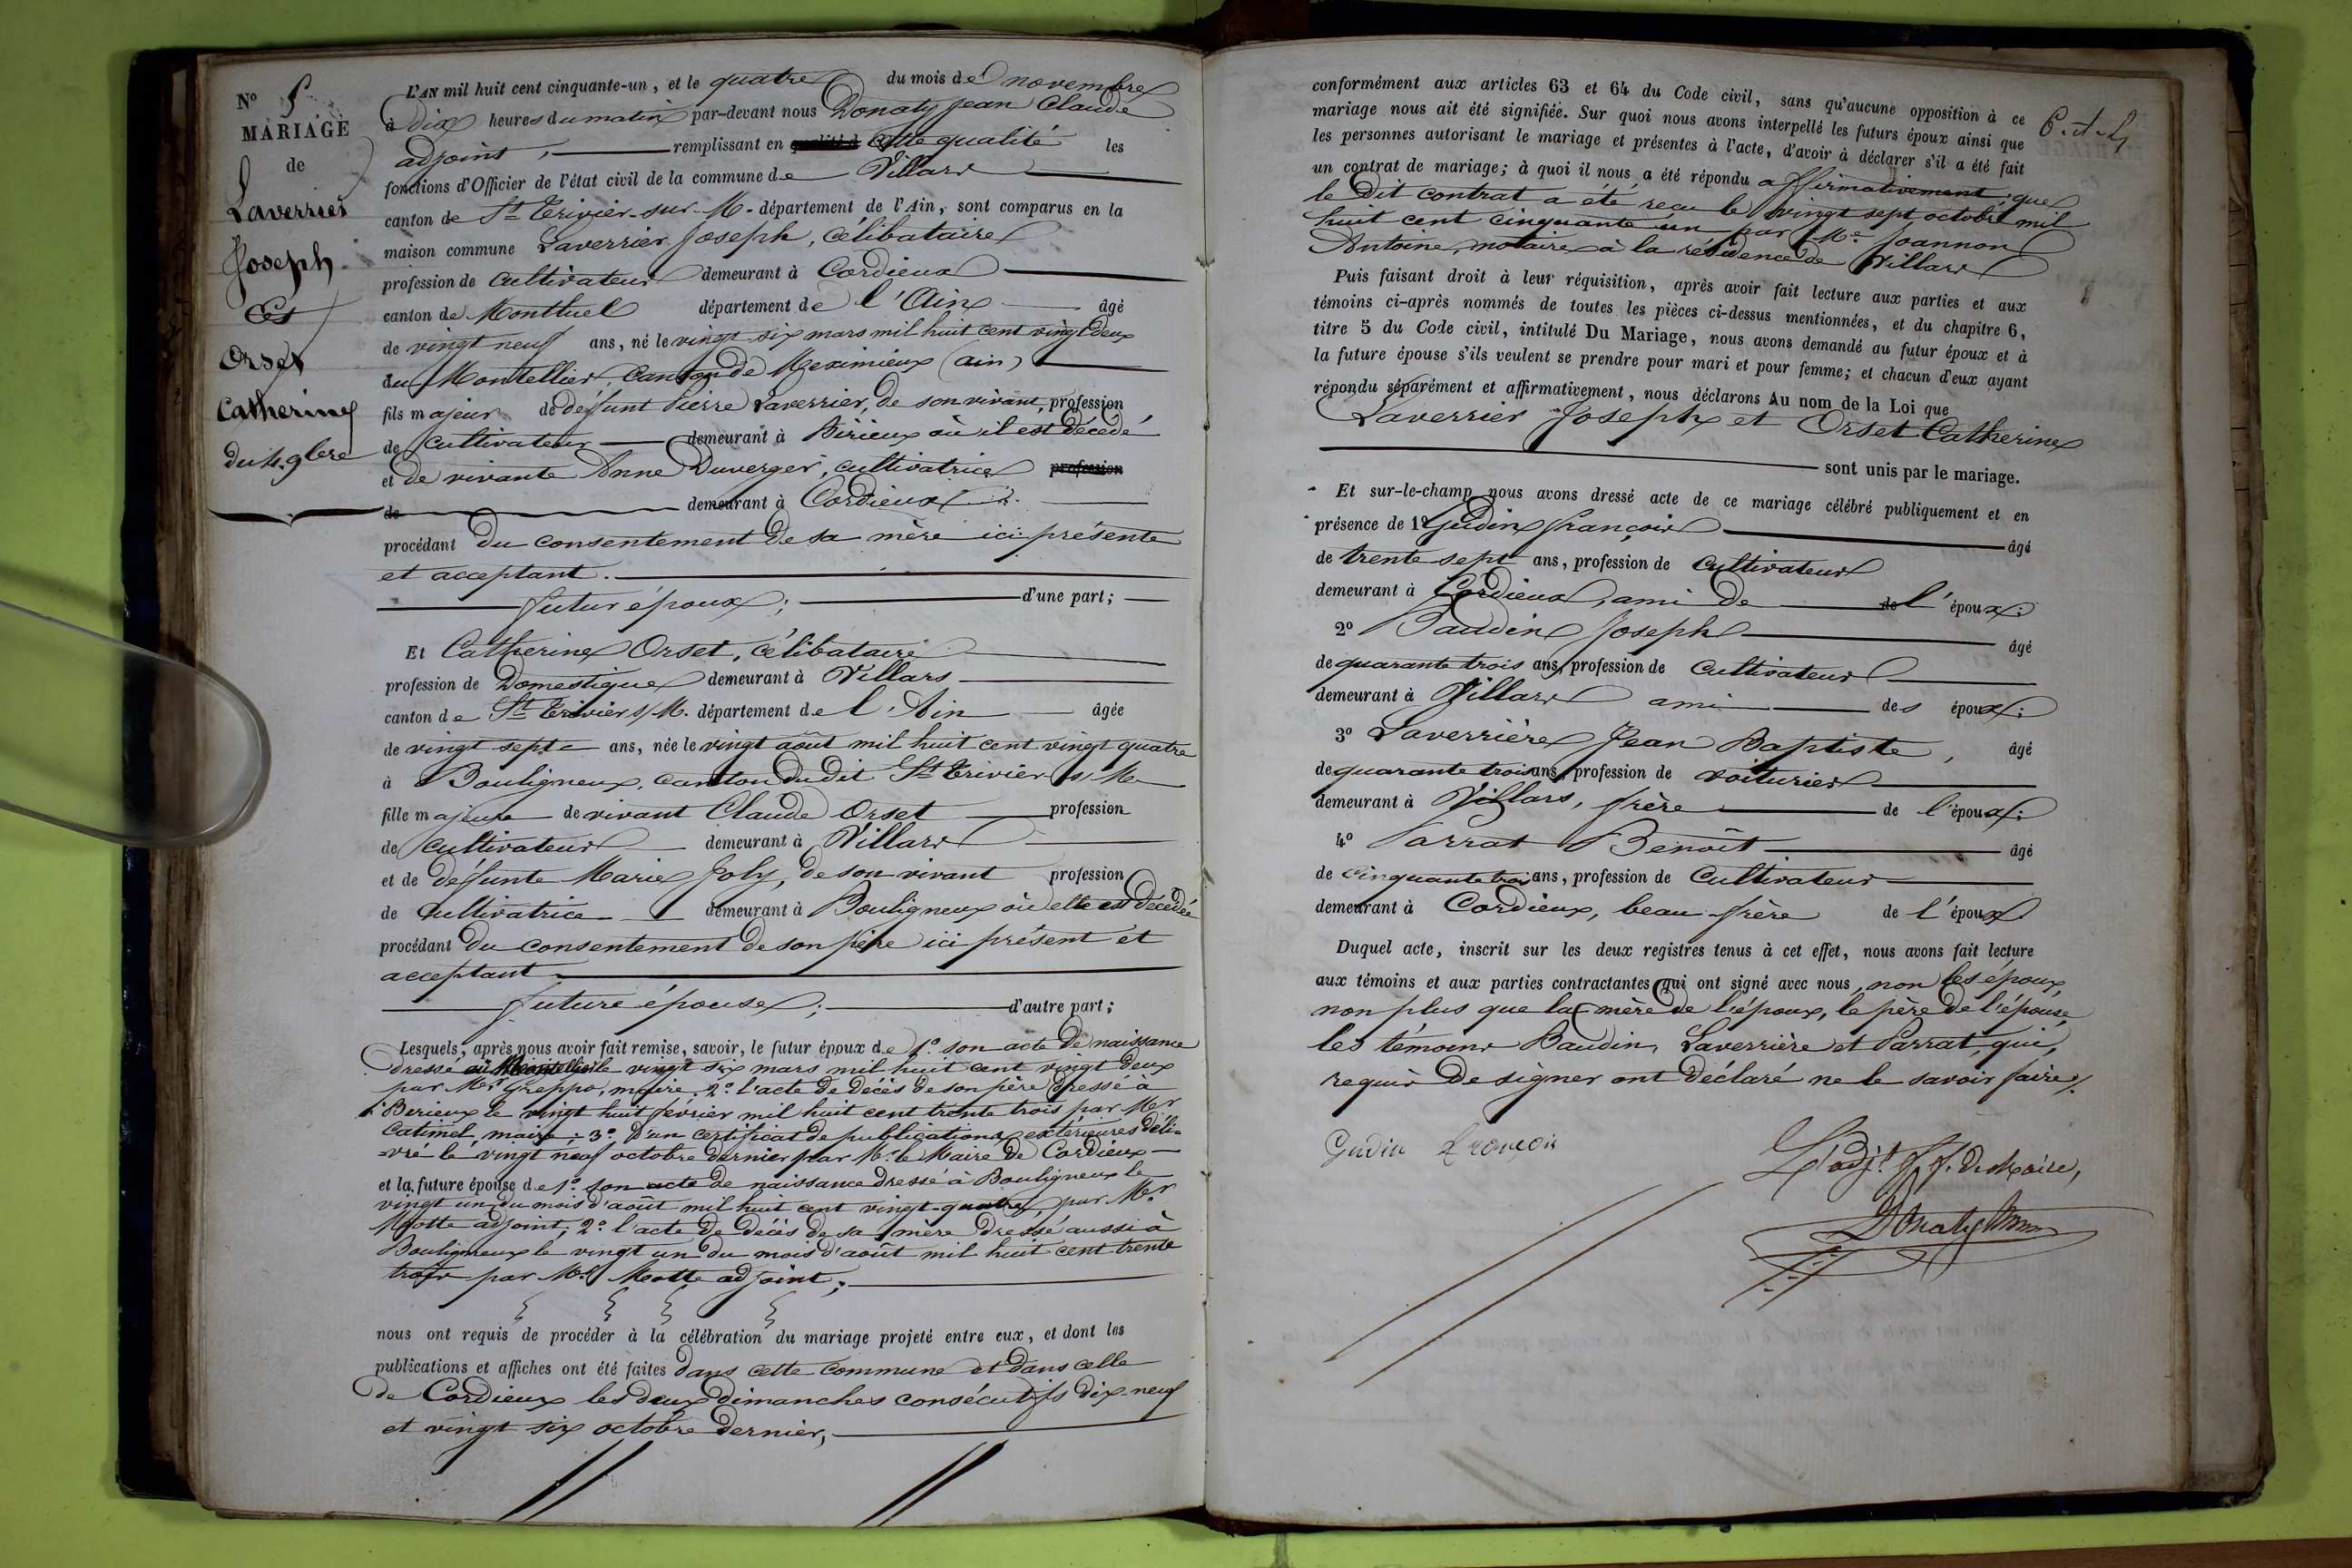 N° 5
MARIAGE
de
Laverrier
Joseph
Et
Orset
Catherine
du 4. 9bre
L'AN mil huit cent cinquante-un, et le quatre du mois de novembre
à dix heures du matin par-devant nous Donaty Jean Claude
adjoint, remplissant en cette qualité les
fonctions d'Officier de l'état civil de la commune de Villars
canton de St Trivier-sur-M. département de l'Ain, sont comparus en la
maison commune Laverrier Joseph, célibataire
profession de cultivateur demeurant à Cordieux
canton de Montluel département de l'Ain âgé
de vingt neuf ans, né le vingt six mars mil huit cent vingt deux
du Montellier, canton de Meximieux (ain)
fils majeur de défunt Pierre Laverrier, de son vivant, profession
de cultivateur demeurant à Birieux où il est décédé
et de vivante Anne Duverger, cultivatrice profession
de demeurant à Cordieux
procédant du consentement de sa mère ici présente
et acceptant.
futur époux; d'une part;
Et Catherine Orset, célibataire
profession de Domestique demeurant à Villars
canton de St Trivier s/ M. département de l'Ain âgée
de vingt sept ans, née le vingt août mil huit cent vingt quatre
à Bouligneux, canton du dit St Trivier s/ M
fille majeure de vivant Claude Orset profession
de cultivateur demeurant à Villars
et de défunte Marie Joly, de son vivant profession
de cultivatrice demeurant à Bouligneux où elle est décédée
procédant du consentement de son père ici présent et
acceptant
future épouse; d'autre part;
Lesquels, après nous avoir fait remise, savoir, le futur époux de 1° son acte de naissance
dressé au Montellier le vingt six mars mil huit cent vingt deux
par Mr Greppo, maire. 2° l'acte de décès de son père dressé à
Berieux le vingt huit février mil huit cent trente trois par Mr
Catimel, maire; 3° d'un certificat de publications extérieures déli=
=vré le vingt neuf octobre dernier par Mr le Maire de Cordieux
et la future épouse de 1° son acte de naissance dressé à Bouligneux le
vingt un du mois d'août mil huit cent vingt-quatre, par Mr
Motte adjoint; 2° l'acte de décès de sa mère dressé aussi à
Bouligneux le vingt un du mois d'août mil huit cent trente
trois par Mr Motte adjoint;
nous ont requis de procéder à la célébration du mariage projeté entre eux, et dont les
publications et affiches ont été faites dans cette commune et dans celle
de Cordieux les deux dimanches consécutifs dix-neuf
et vingt six octobre dernier,
conformément aux articles 63 et 64 du Code civil, sans qu'aucune opposition à ce
mariage nous ait été signifiée. Sur quoi nous avons interpellé les futurs époux ainsi que
les personnes autorisant le mariage et présentes à l'acte, d'avoir à déclarer s'il a été fait
un contrat de mariage; à quoi il nous a été répondu affirmativement; que
le dit contrat a été reçu le vingt sept octobre mil
huit cent cinquante un par Me Joannon
Antoine, notaire à la résidence de Villars
Puis faisant droit à leur réquisition, après avoir fait lecture aux parties et aux
témoins ci-après nommés de toutes les pièces ci-dessus mentionnées, et du chapitre 6,
titre 5 du Code civil, intitulé Du Mariage, nous avons demandé au futur époux et à
la future épouse s'ils veulent se prendre pour mari et pour femme; et chacun d'eux ayant
répondu séparément et affirmativement, nous déclarons Au nom de la Loi que
Laverrier Joseph et Orset Catherine
sont unis par le mariage.
Et sur-le-champ nous avons dressé acte de ce mariage célébré publiquement et en
présence de 1° Gudin françois âgé
de trente sept ans, profession de cultivateur
demeurant à Cordieux, ami de de l'époux;
2° Baudin Joseph âgé
de quarante trois ans, profession de cultivateur
demeurant à Villars ami des époux;
3° Laverrière Jean Baptiste, âgé
de quarante trois ans, profession de voiturier
demeurant à Villars, frère de l'époux;
4° Parrat Benoît âgé
de cinquante trois ans, profession de cultivateur
demeurant à Cordieux, beau-frère de l'époux
Duquel acte, inscrit sur les deux registres tenus à cet effet, nous avons fait lecture
aux témoins et aux parties contractantes qui ont signé avec nous, non les époux,
non plus que la mère de l'époux, le père de l'épouse,
les témoins Baudin, Laverrière et Parrat, qui,
requis de signer ont déclaré ne le savoir faire/.
Gudin françois
L'adjt f.f. de Maire,
Donaty